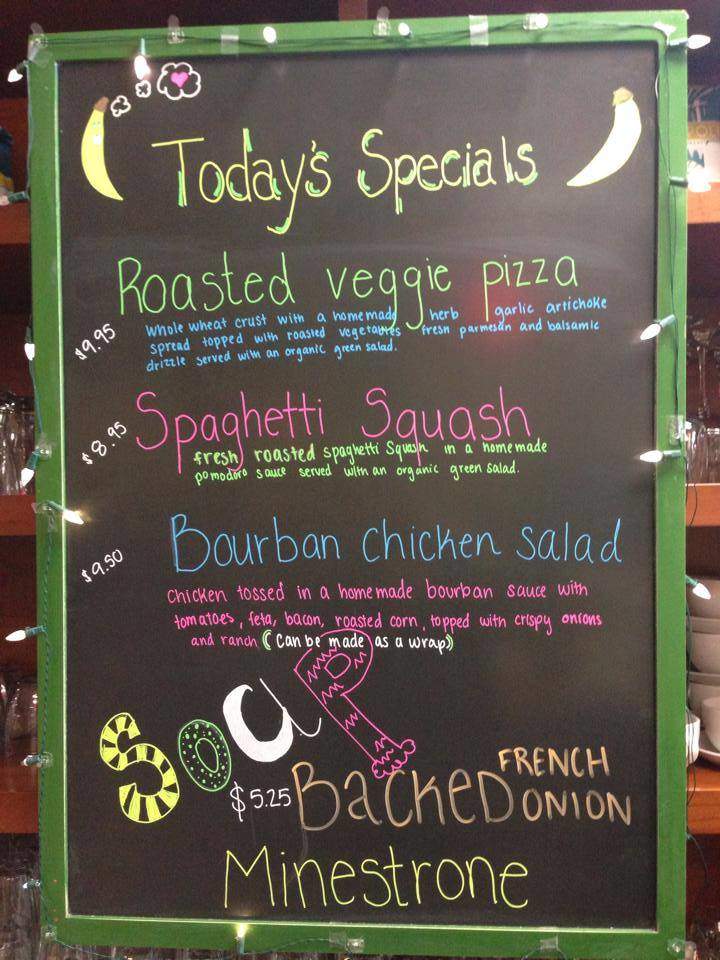 Today's Specials
Roasted veggie pizza
$9.95
Whole wheat crust with a homemade herb garlic artichoke
spread topped with roasted vegetables fresh parmesan and balsamic
drizzle served with an organic green salad.
Spaghetti Squash
$8.95
fresh roasted spaghetti Squash in a homemade
pomodoro sauce served with an organic green salad.
Bourban chicken salad
$9.50
Chicken tossed in a homemade bourban sauce with
tomatoes, feta, bacon, roasted corn, topped with crispy onions
and ranch (Can be made as a wrap)
SouP
$5.25
BackeD FRENCH ONION
Minestrone